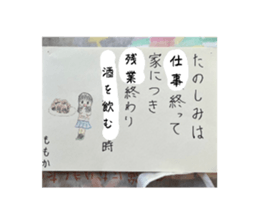 たのしみは
仕事終って
家につき
残業終わり
酒を飲む時
ももか